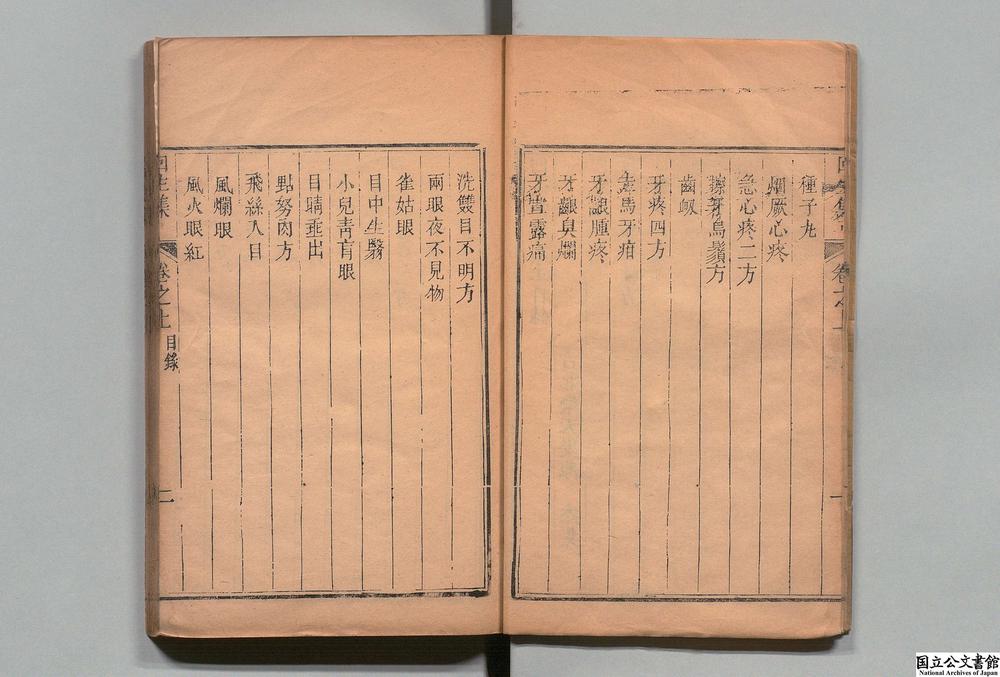 種子丸
胃厥心疼
急心疼二方
擦牙烏鬚方
齒衂
牙疼四方
走馬牙疳
牙齦腫疼
牙齦臭爛
牙宣露痛
卷之上
一
洗雙目不明方
兩眼夜不見物
雀姑眼
目中生翳
小兒青盲眼
目睛垂出
點努肉方
飛絲入目
風爛眼
風火眼紅
回生集
卷之上
目錄
二
国立公文書館
National Archives of Japan